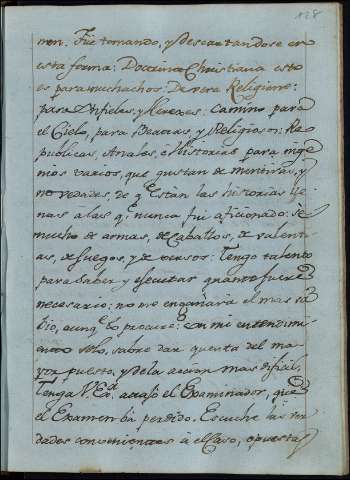 128
men. Fue tomando, y descartandose en
esta forma: Doctrina Christiana esto
es para muchachos: De vera Religione:
para Infieles, y Hereges: Camino para
el Cielo, para Beatas, y Religiosos: Re
publicas, Anales, é Historias para inge
nios varios, que gustan de mentiras, y
novedades, de q.e estàn las historias lle
nas a las q.e nunca fui aficionado: Se
mucho de armas, de Caballos, de valenti
as, de fuegos, y de : Tengo talento
para saber y ejecutar quanto fuere
necesario: no me engañarà el mas sa
bio, aunq.e lo procure: con mi entendimi
ento solo, sabre dar quenta del ma
yor puesto, y de la accion mas dificil.
Tenga V.Ex.a acaso el Examinador, que
el Examen bà perdido. Escuche las ver
dades convenientes à el Caso, opuestas